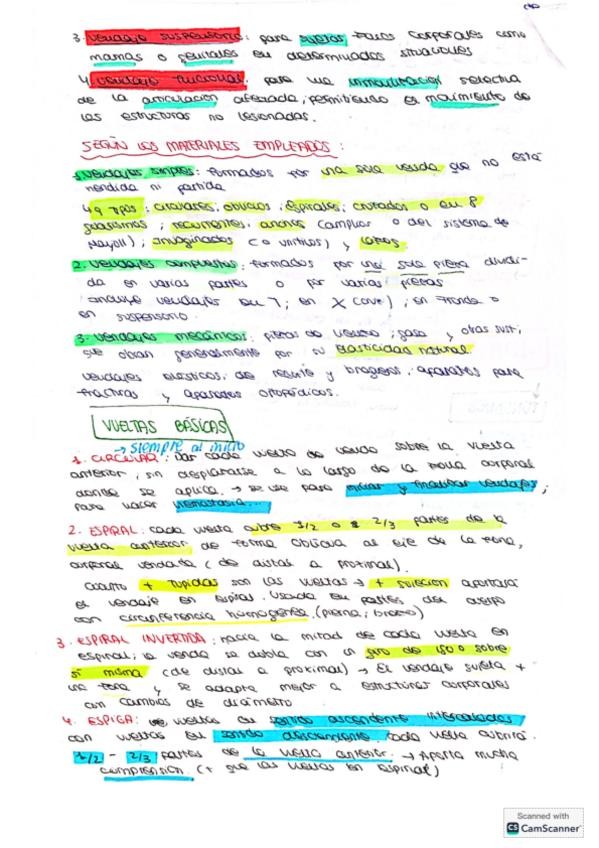 3. vendaje suspensorio: para sujetar zonas corporales como
mamas o genitales en determinadas situaciones
4. vendaje funcional: para una inmovilización selectiva
de la articulación afectada, permitiendo el movimiento de
las estructuras no lesionadas.
SEGÚN LOS MATERIALES EMPLEADOS:
1. Vendajes simples: formados por una sola venda que no está
hendida ni partida
↳ 9 tipos: circulares, oblicuos, espirales, cruzados o en 8
guarismos; recurrentes, anchos (amplios o del sistema de
Mayor); invaginados (o unitivos) y
2. Vendajes compuestos: formados por una sola pieza dividi-
da en varias partes o por varias piezas
incluye vendajes en T; en X (ave), en fronda o
en suspensorio.
3. vendajes mecánicos: piezas de vendas, gasa y otras sust;
que obran generalmente por su elasticidad natural.
vendajes elásticos, de resorte y brageros, aparatos para
fracturas y aparatos ortopédicos.
VUELTAS BÁSICAS
→ siempre al inicio
1. CIRCULAR: Dar cada vuelta de venda sobre la vuelta
anterior, sin desplazarse a lo largo de la zona corporal
donde se aplica. → se usa para iniciar y finalizar vendajes;
para hacer hemostasia...
2. ESPIRAL: cada vuelta cubre 1/2 o 2/3 partes de la
vuelta anterior de forma oblicua al eje de la zona,
corporal vendada (de distal a proximal).
Cuanto + tupidas son las vueltas → + sujeción aportará
el vendaje en espiral. Usada en partes del cuerpo
con circunferencia homogénea. (pierna; brazo)
3. ESPIRAL INVERTIDA: hacia la mitad de cada vuelta en
espiral; la venda se dobla con un giro de 180º sobre
sí misma (de distal a proximal) → El vendaje sujeta +
una zona y se adapta mejor a estructuras corporales
con cambios de diámetro
4. ESPIGA: vueltas en sentido ascendente intercaladas
con vueltas en sentido descendente. Cada vuelta cubrirá
1/2 - 2/3 partes de la vuelta anterior. → Aporta mucha
compresión (+ que las vueltas en espiral)
Scanned with
CS CamScanner